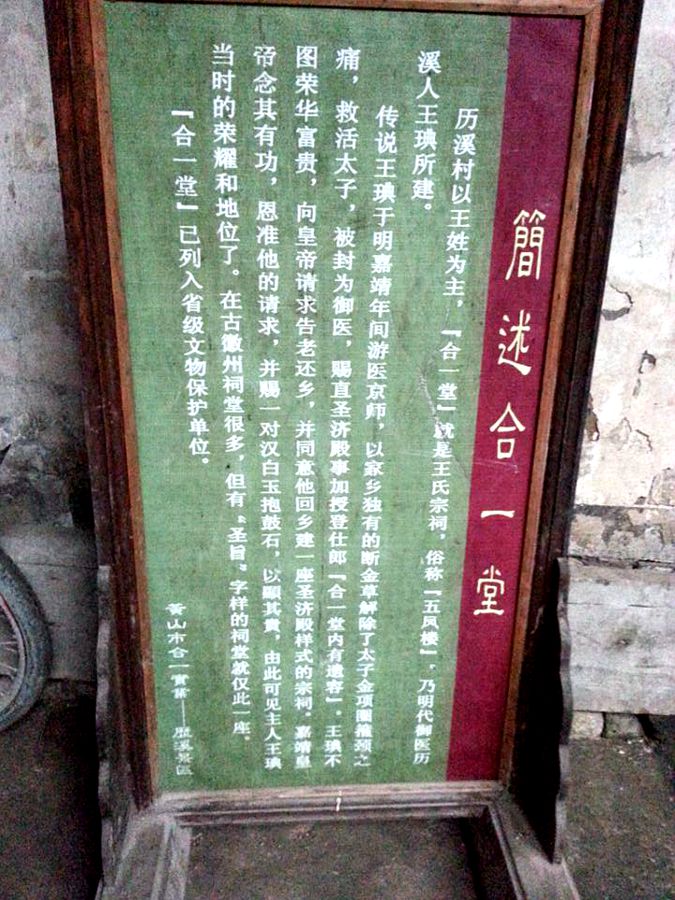 簡述合一堂
历溪村以王姓为主，『合一堂』就是王氏宗祠，俗称『五凤楼』，乃明代御医历
溪人王琠所建。
传说王琠于明嘉靖年间游医京师，以家乡独有的断金草解除了太子金项圈箍颈之
痛，救活太子，被封为御医，赐直圣济殿事加授登仕郎『合一堂内有遗容』。王琠不
图荣华富贵，向皇帝请求告老还乡，并同意他回乡建一座圣济殿样式的宗祠。嘉靖皇
帝念其有功，恩准他的请求，并赐一对汉白玉抱鼓石，以顯其貴，由此可见主人王琠
当时的荣耀和地位了。在古徽州祠堂很多，但有“圣旨”字样的祠堂就仅此一座。
『合一堂』已列入省级文物保护单位。
黃山市合一實業——歷溪景區